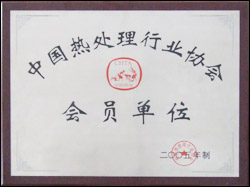 中国热处理行业协会
CHTA
会员单位
二〇〇五年制